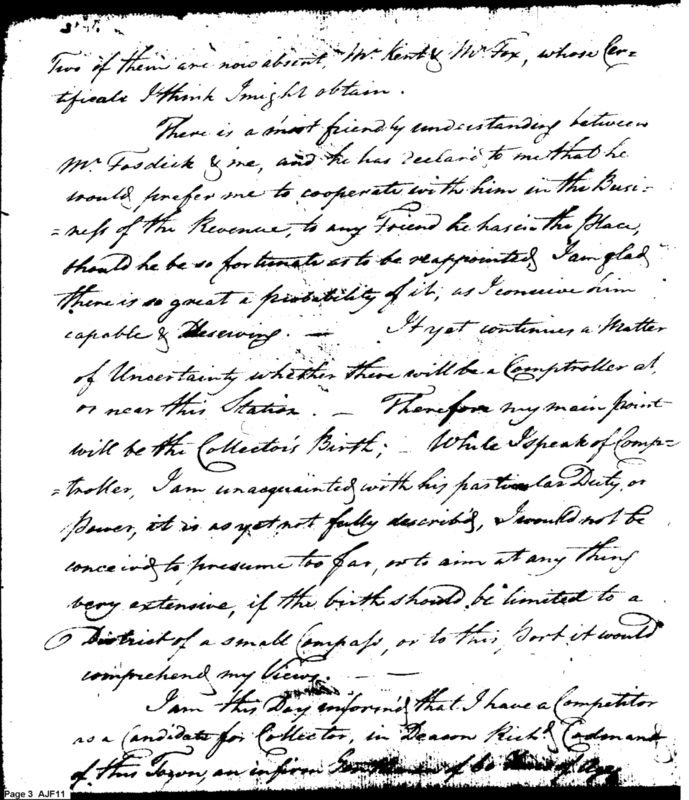 Two of them are now absent, Mr. Kent & Mr. Fox, whose Cer=
tificate I think I might obtain.
There is a most friendly understanding between
Mr. Fosdick & me, and he has declar'd to me that he
would prefer me to cooperate with him in the Busi-
=neſs of the Revenue, to any Friend he has in the Place,
should he be so fortunate as to be reappointed, I am glad
there is so great a probability of it, as I conceive him
capable & Deserving. — It yet continues a Matter
of Uncertainty whether there will be a Comptroller at,
or near this Station. — Therefore my main point
will be the Collector's Birth; — While I speak of Comp=
=troller, I am unacquainted with his particular Duty, or
Power, it is as yet not fully describ'd, I would not be
conceiv'd to presume too far, or to aim at any thing
very extensive, if the birth should be limited to a
District of a small Compaſs, or to this Port it would
comprehend my Views. — —
I am this Day inform'd that I have a Competitor
as a Candidate for Collector, in Deacon Richd. Codman
of this Town, an infirm Gentleman of 60 Years of Age
Page 3 AJF11